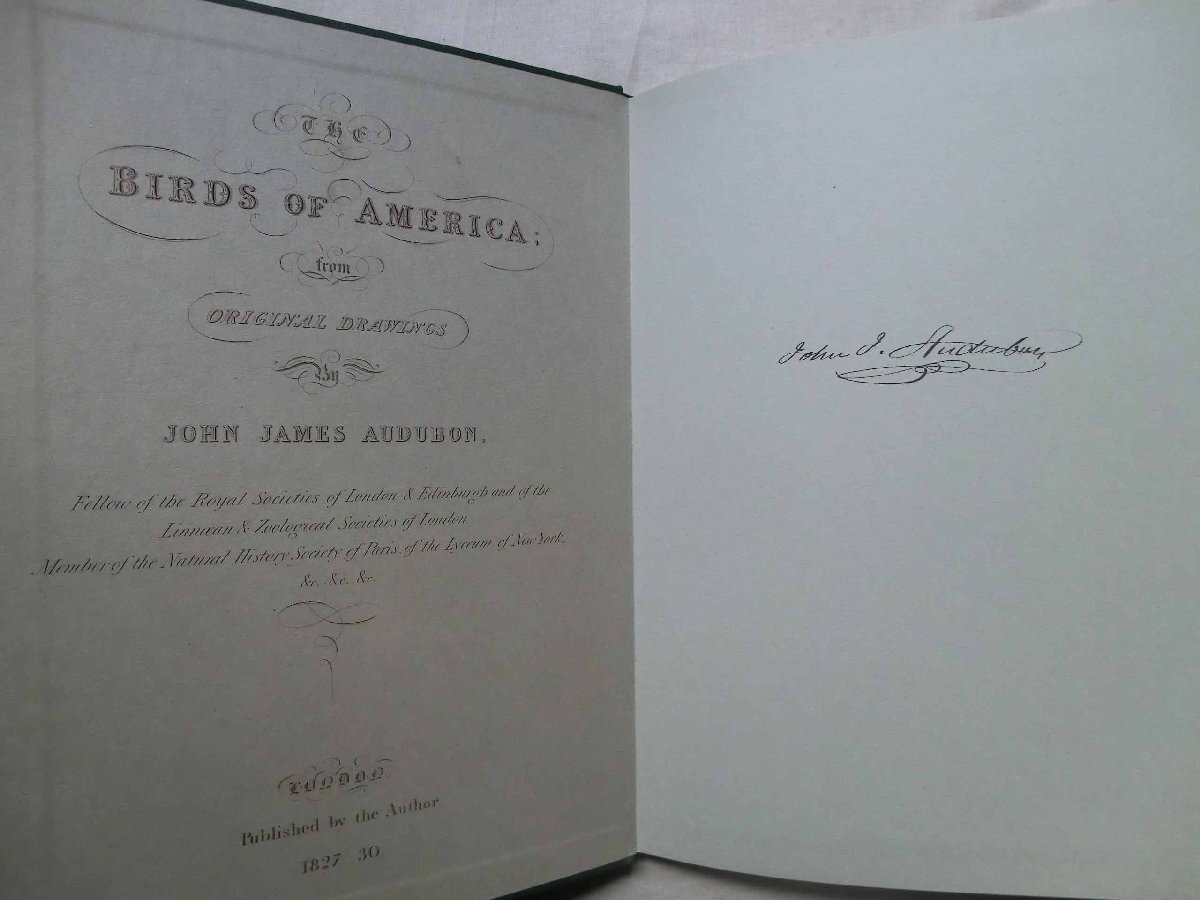 THE
BIRDS OF AMERICA;
from
ORIGINAL DRAWINGS
By
JOHN JAMES AUDUBON,
Fellow of the Royal Societies of London & Edinburgh and of the
Linnæan & Zoological Societies of London
Member of the Natural History Society of Paris, of the Lyceum of New York,
&c. &c. &c.
LONDON.
Published by the Author
1827-30
John J. Audubon